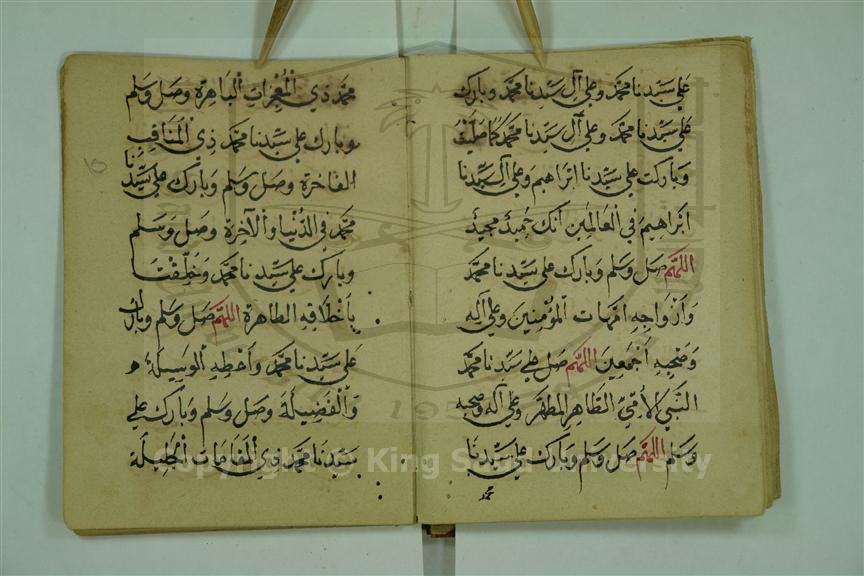 علي سيدنا محمد وعلي آل سيدنا محمد وبارك
علي سيدنا محمد وعلي آل سيدنا محمد كما صليت
وباركت علي سيدنا ابراهيم وعلي آل سيدنا
ابراهيم في العالمين انك حميد مجيد
اللهم صل وسلم وبارك علي سيدنا محمد
وازواجه امهات المؤمنين وعلي آله
وصحبه اجمعين اللهم صل علي سيدنا محمد
النبي الامي الطاهر المطهر وعلي آله وصحبه
وسلم اللهم صل وسلم وبارك علي سيدنا
محمد
محمد ذي المعجزات الباهرة وصل وسلم
وبارك علي سيدنا محمد ذي المناقب
الفاخرة وصل وسلم وبارك علي سيدنا
محمد في الدنيا والآخرة وصل وسلم
وبارك علي سيدنا محمد وخلقنا
باخلاقه الطاهرة اللهم صل وسلم وبارك
علي سيدنا محمد واعطه الوسيلة
والفضيلة وصل وسلم وبارك علي
سيدنا محمد ذي المقامات الجليلة
Copyright © King Saud University